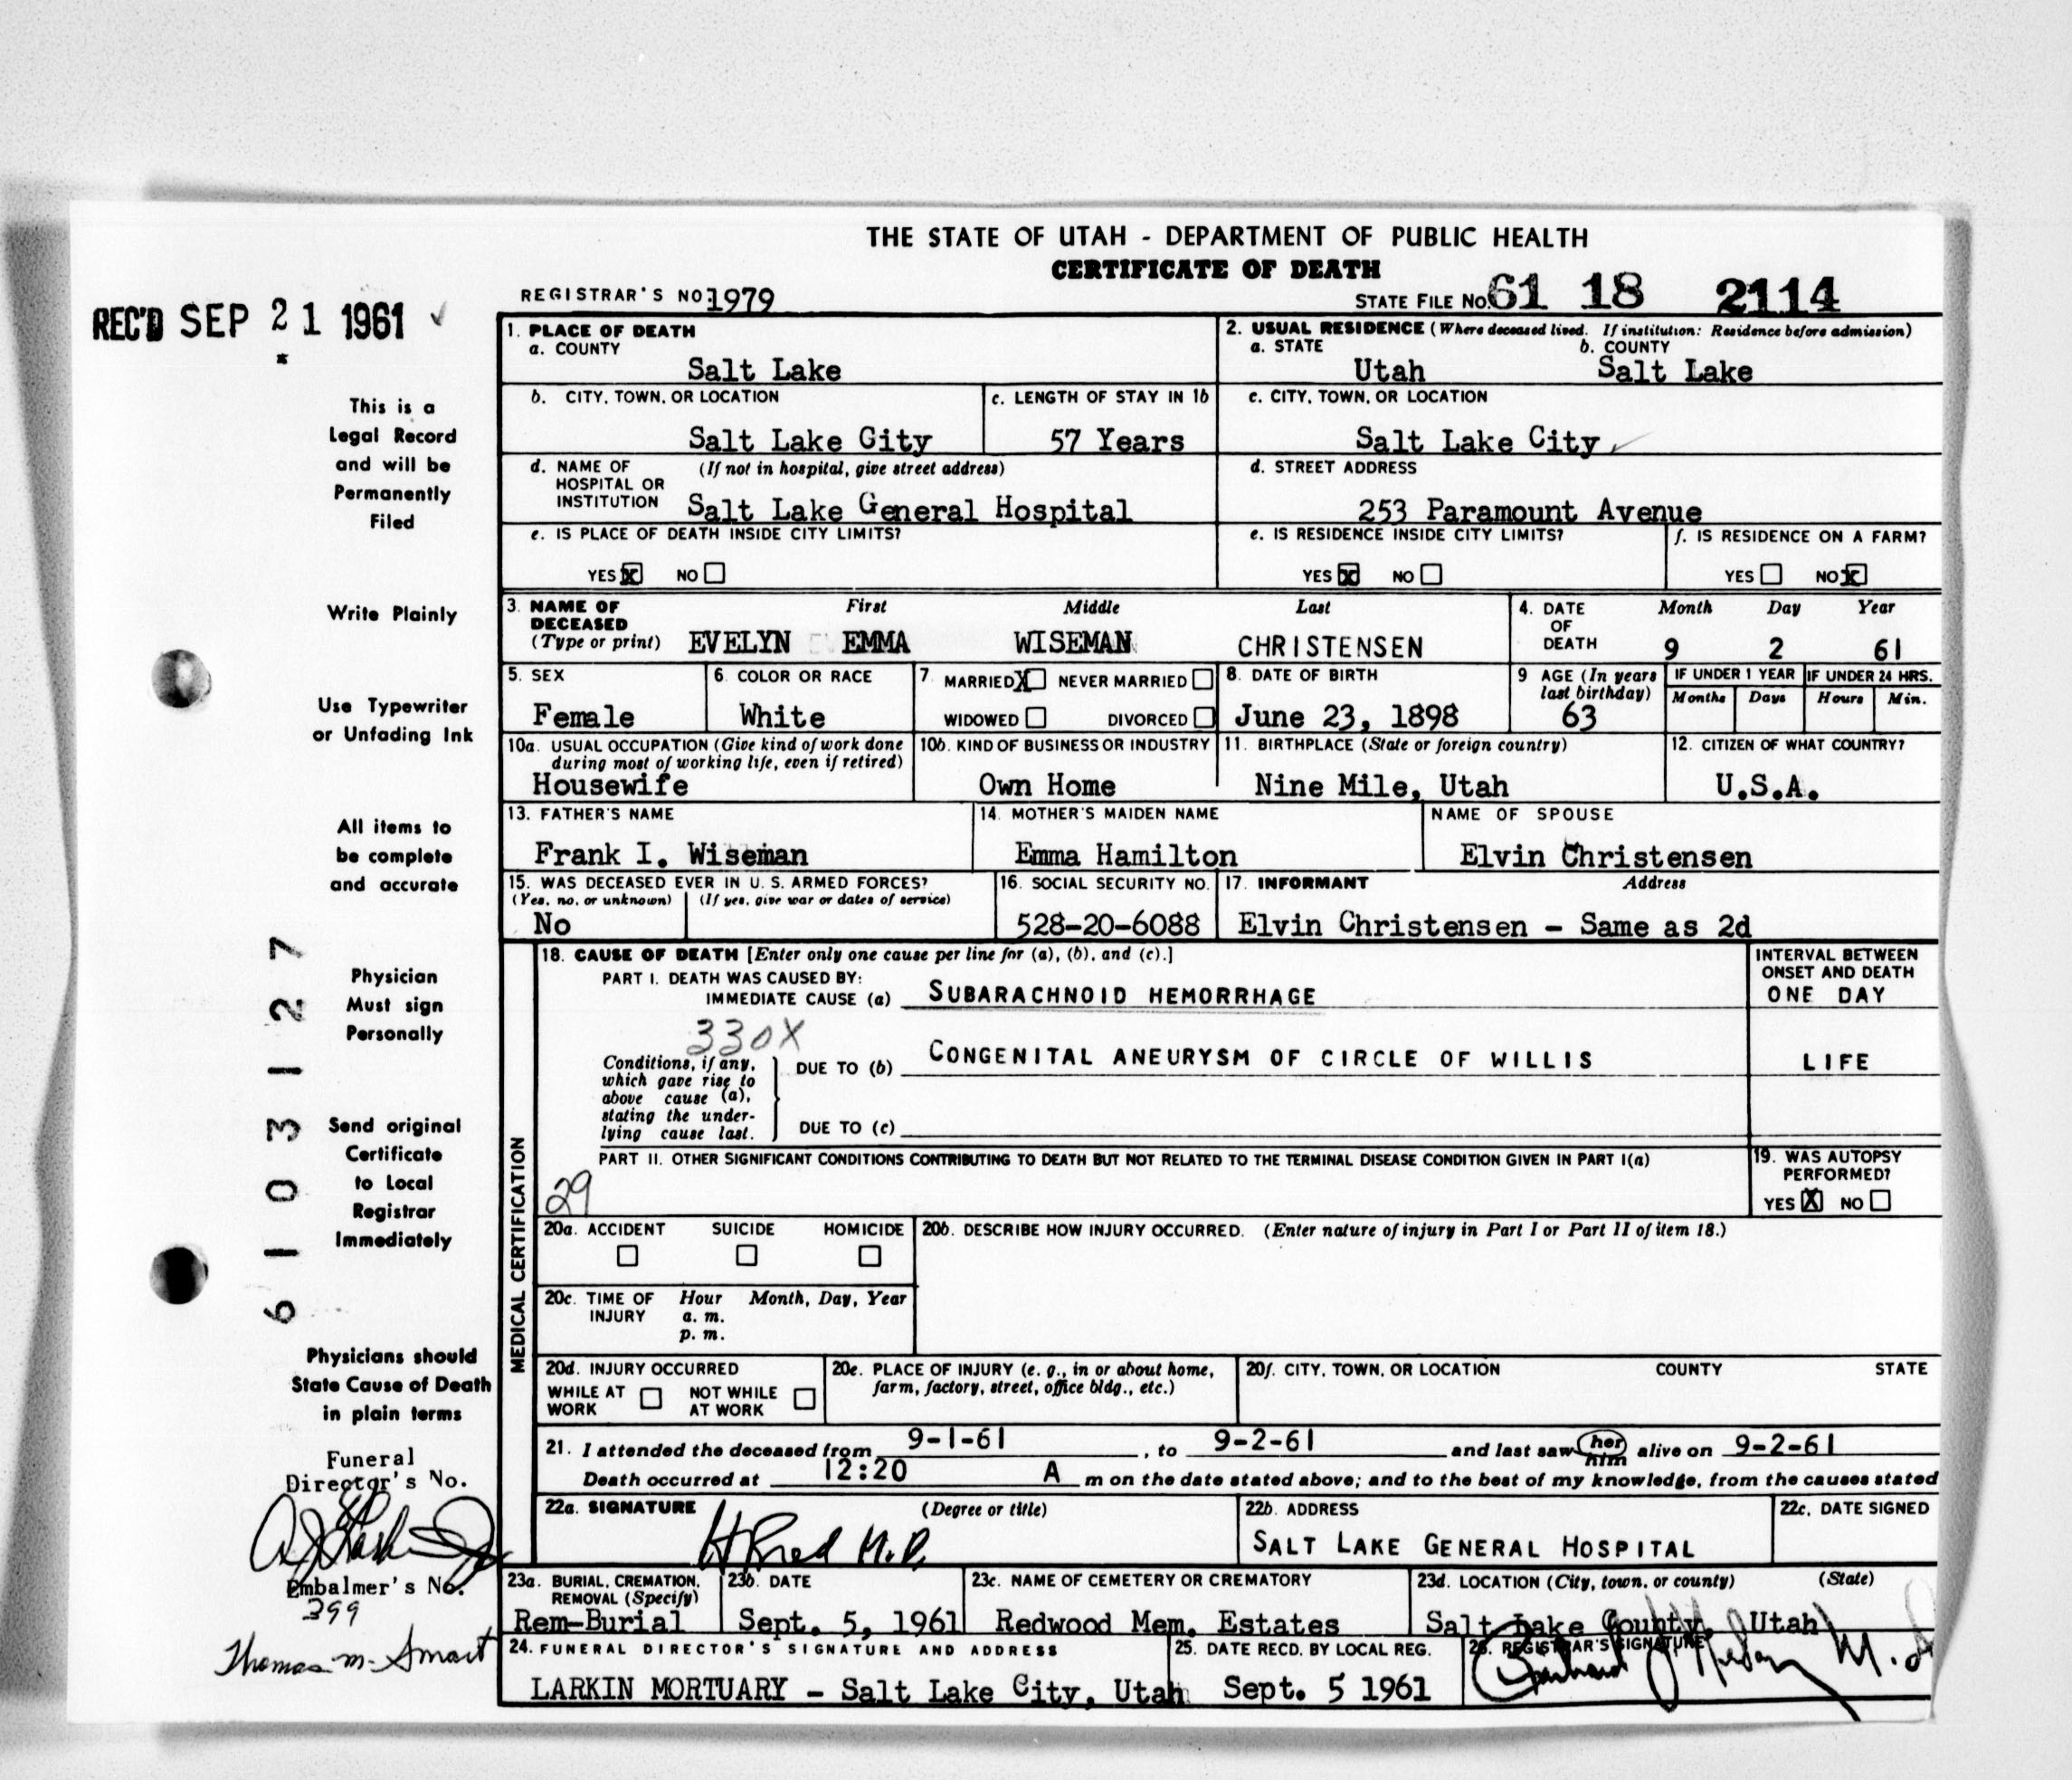 THE STATE OF UTAH - DEPARTMENT OF PUBLIC HEALTH
CERTIFICATE OF DEATH
REGISTRAR'S NO: 1979
STATE FILE NO. 61 18 2114
REC'D SEP 21 1961
This is a
Legal Record
and will be
Permanently
Filed
Write Plainly
Use Typewriter
or Unfading Ink
All items to
be complete
and accurate
Physician
Must sign
Personally
Send original
Certificate
to Local
Registrar
Immediately
Physicians should
State Cause of Death
in plain terms
Funeral
Director's No.
Embalmer's No.
399
Thomas M. Smart
61031127
1. PLACE OF DEATH
a. COUNTY
Salt Lake
2. USUAL RESIDENCE (Where deceased lived. If institution: Residence before admission)
a. STATE b. COUNTY
Utah Salt Lake
b. CITY, TOWN, OR LOCATION
Salt Lake City
c. LENGTH OF STAY IN 1b
57 Years
c. CITY, TOWN, OR LOCATION
Salt Lake City
d. NAME OF HOSPITAL OR INSTITUTION (If not in hospital, give street address)
Salt Lake General Hospital
d. STREET ADDRESS
253 Paramount Avenue
e. IS PLACE OF DEATH INSIDE CITY LIMITS?
YES X NO
e. IS RESIDENCE INSIDE CITY LIMITS?
YES X NO
f. IS RESIDENCE ON A FARM?
YES NO X
3. NAME OF DECEASED (Type or print) First Middle Last
EVELYN EMMA WISEMAN CHRISTENSEN
4. DATE OF DEATH Month Day Year
9 2 61
5. SEX
Female
6. COLOR OR RACE
White
7. MARRIED X NEVER MARRIED
WIDOWED DIVORCED
8. DATE OF BIRTH
June 23, 1898
9 AGE (In years last birthday)
63
IF UNDER 1 YEAR
Months Days
IF UNDER 24 HRS.
Hours Min.
10a. USUAL OCCUPATION (Give kind of work done during most of working life, even if retired)
Housewife
10b. KIND OF BUSINESS OR INDUSTRY
Own Home
11. BIRTHPLACE (State or foreign country)
Nine Mile, Utah
12. CITIZEN OF WHAT COUNTRY?
U.S.A.
13. FATHER'S NAME
Frank I. Wiseman
14. MOTHER'S MAIDEN NAME
Emma Hamilton
NAME OF SPOUSE
Elvin Christensen
15. WAS DECEASED EVER IN U. S. ARMED FORCES?
(Yes, no, or unknown) (If yes, give war or dates of service)
No
16. SOCIAL SECURITY NO.
528-20-6088
17. INFORMANT Address
Elvin Christensen - Same as 2d
MEDICAL CERTIFICATION
18. CAUSE OF DEATH [Enter only one cause per line for (a), (b), and (c).]
INTERVAL BETWEEN ONSET AND DEATH
PART I. DEATH WAS CAUSED BY:
IMMEDIATE CAUSE (a) SUBARACHNOID HEMORRHAGE
ONE DAY
330X
Conditions, if any, which gave rise to above cause (a), stating the underlying cause last.
DUE TO (b) CONGENITAL ANEURYSM OF CIRCLE OF WILLIS
LIFE
DUE TO (c)
PART II. OTHER SIGNIFICANT CONDITIONS CONTRIBUTING TO DEATH BUT NOT RELATED TO THE TERMINAL DISEASE CONDITION GIVEN IN PART I(a)
29
19. WAS AUTOPSY PERFORMED?
YES X NO
20a. ACCIDENT SUICIDE HOMICIDE
20b. DESCRIBE HOW INJURY OCCURRED. (Enter nature of injury in Part I or Part II of item 18.)
20c. TIME OF INJURY Hour Month, Day, Year
a. m.
p. m.
20d. INJURY OCCURRED
WHILE AT WORK NOT WHILE AT WORK
20e. PLACE OF INJURY (e. g., in or about home, farm, factory, street, office bldg., etc.)
20f. CITY, TOWN, OR LOCATION COUNTY STATE
21. I attended the deceased from 9-1-61, to 9-2-61 and last saw her him alive on 9-2-61
Death occurred at 12:20 A m on the date stated above; and to the best of my knowledge, from the causes stated
22a. SIGNATURE (Degree or title)
M.D.
22b. ADDRESS
SALT LAKE GENERAL HOSPITAL
22c. DATE SIGNED
23a. BURIAL, CREMATION, REMOVAL (Specify)
Rem-Burial
23b. DATE
Sept. 5, 1961
23c. NAME OF CEMETERY OR CREMATORY
Redwood Mem. Estates
23d. LOCATION (City, town, or county) (State)
Salt Lake County, Utah
24. FUNERAL DIRECTOR'S SIGNATURE AND ADDRESS
LARKIN MORTUARY - Salt Lake City, Utah
25. DATE RECD. BY LOCAL REG.
Sept. 5 1961
26. REGISTRAR'S SIGNATURE
M.D.